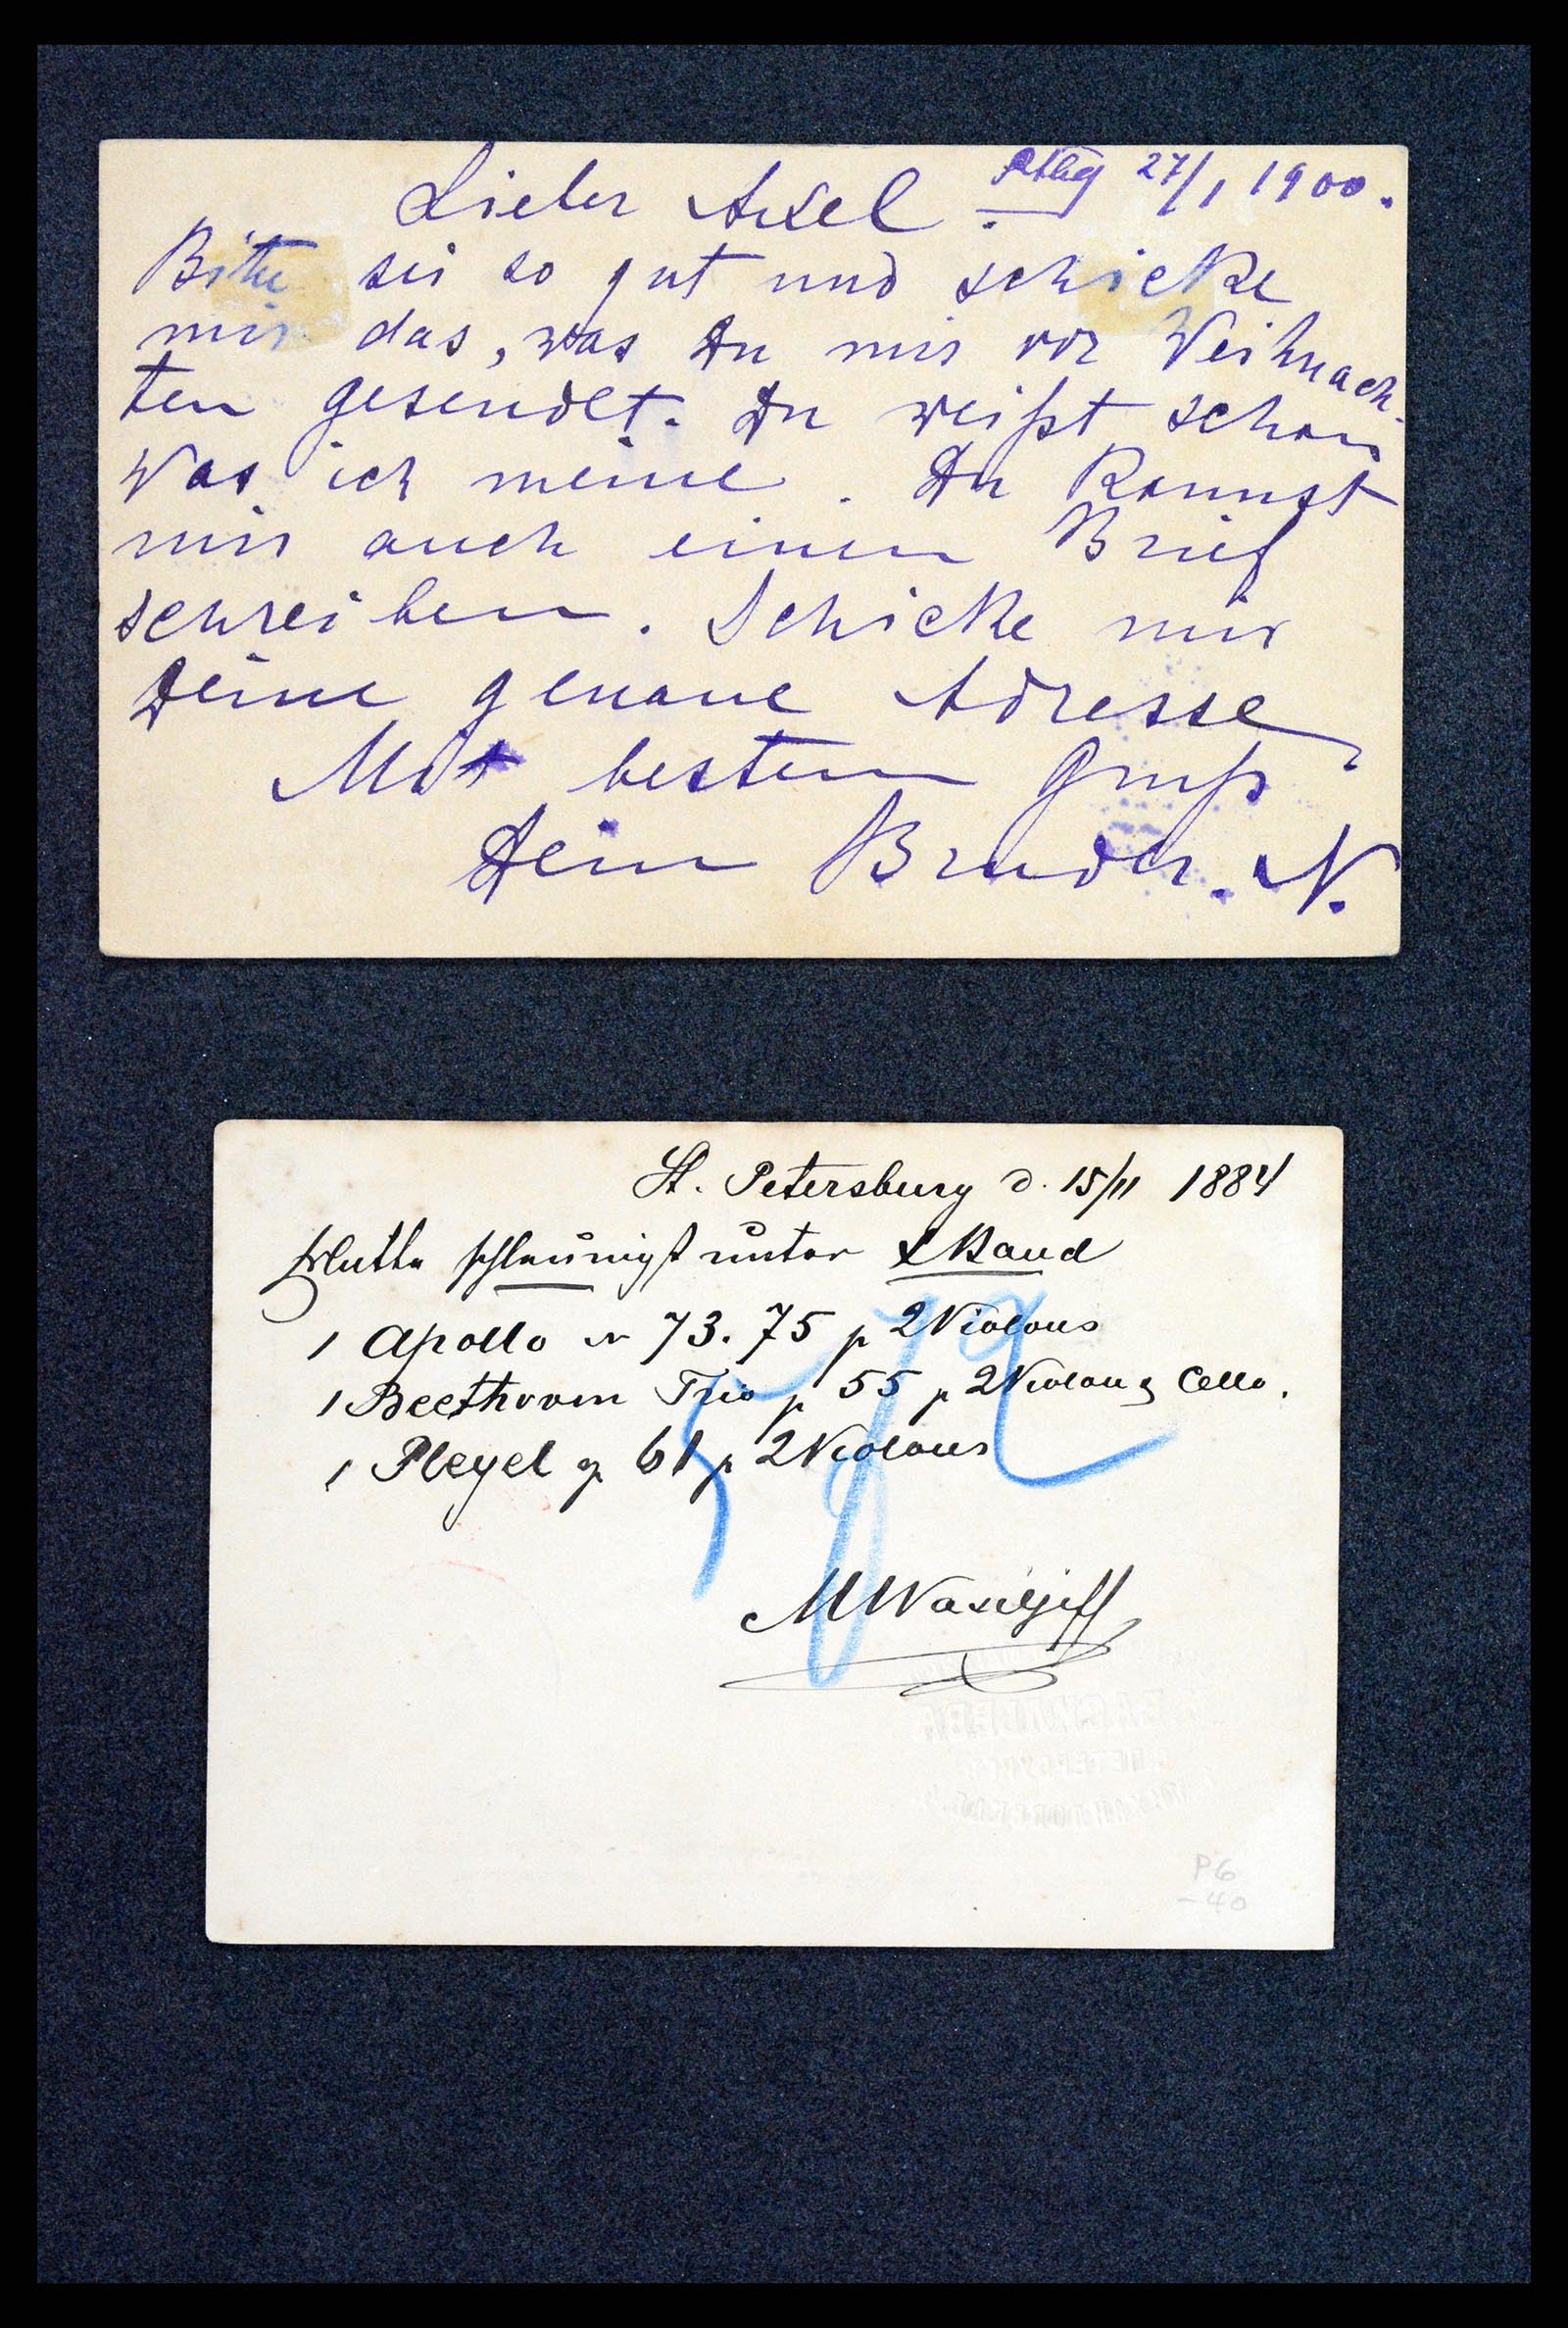 Ptbg 27/1 1900.
Lieber Axel.
Bitte sei so gut und schicke
mir das, was Du mir vor Weihnach-
ten gesendet. Du weißt schon
was ich meine. Du kannst
mir auch einen Brief
schreiben. Schicke mir
Deine genaue Adresse
Mit bestem Gruß
Dein Bruder. N.
St. Petersburg d. 15/11 1884
Bitte schleunigst unter x Band
1 Apollo 73. 75 p 2 Violons
1 Beethoven Trio 55 p 2 Violon & Cello.
1 Pleyel op 61 p 2 Violons
MWasiljeff
P6
-40